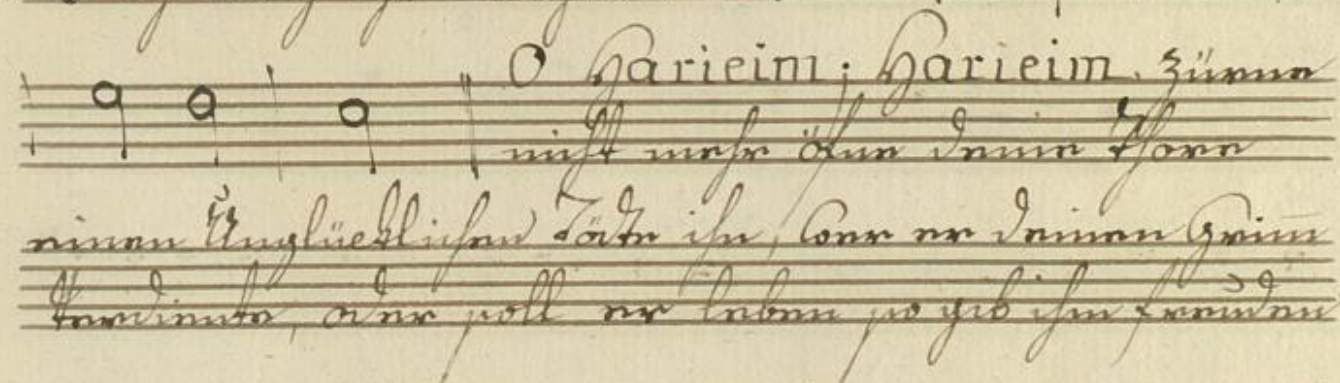 O Harieim; Harieim. zürne
nicht mehr öfne deine Thore
einen Unglücklichen Tödte ihn, wer er deinen Grim̄
Verdiente, oder soll er leben so gib ihm freuden